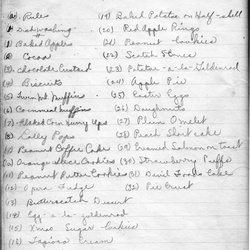 (a) Rules (19) Baked Potatoe on Half-shell
Dishwashing (20) Red Apple Rings
(1) Baked Apples (21) Peanut Cookies
(2) Cocoa (22) Scotch Scones
(3) Chocolate Custard (23) Potatoe-a-la-Goldenrod
(4) Biscuits (24) Apple Pie
(5) Twin Mt. Muffins (25) Easter Eggs
(6) Cornmeal Muffins (26) Doughnuts
(7) Flaked Corn Hurry Ups (27) Plain Omelet
(8) Lolly Pops (28) Peach Short cake
(9) Peanut Coffee Cake (29) Creamed Salmon on toast
(10) Orange Cookies (30) Strawberry Puffs
(11) Peanut Butter Cookies (31) Devil Foods Cake
(12) Opera Fudge (32) Pie Crust
(13) Butterscotch Desert
(14) Egg-a-la-goldenrod
(15) Xmas Sugar Cookies
(16) Tapioca Cream